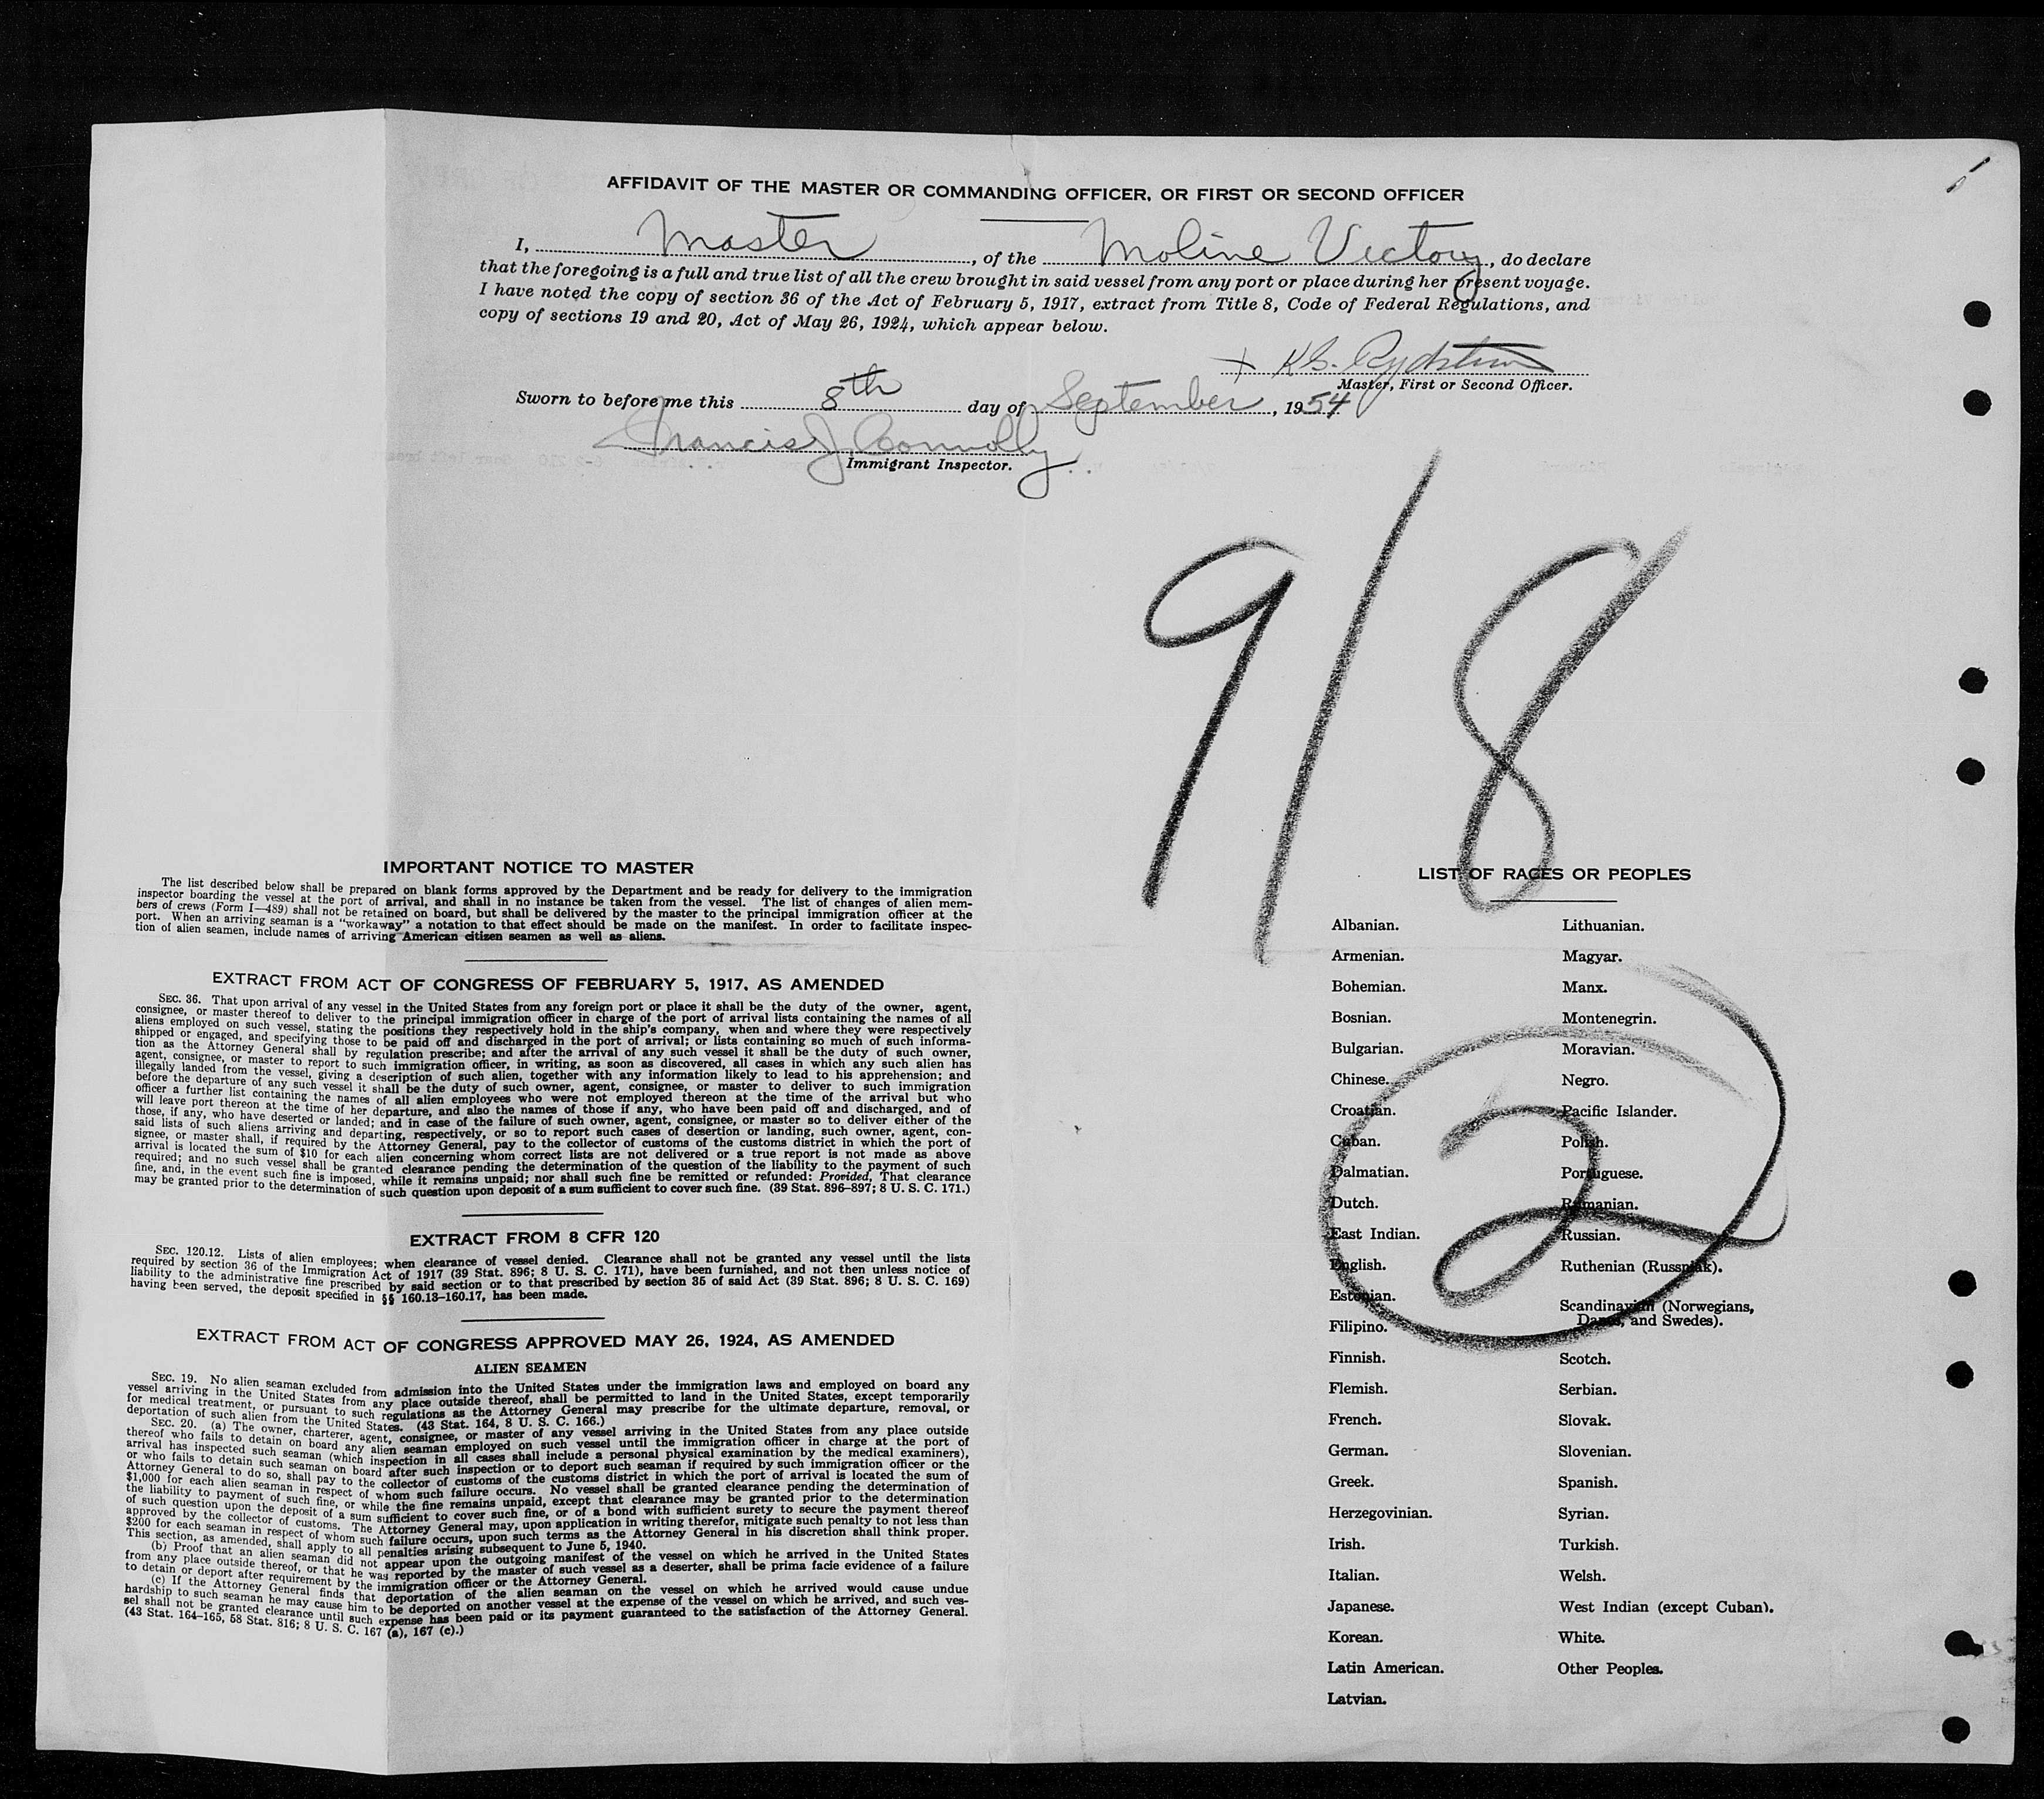 AFFIDAVIT OF THE MASTER OR COMMANDING OFFICER, OR FIRST OR SECOND OFFICER
I, Master, of the Moline Victory, do declare
that the foregoing is a full and true list of all the crew brought in said vessel from any port or place during her present voyage.
I have noted the copy of section 36 of the Act of February 5, 1917, extract from Title 8, Code of Federal Regulations, and
copy of sections 19 and 20, Act of May 26, 1924, which appear below.
Master, First or Second Officer.
Sworn to before me this 8th day of September, 1954
Francis J. Connolly
Immigrant Inspector.
9/8
2
IMPORTANT NOTICE TO MASTER
The list described below shall be prepared on blank forms approved by the Department and be ready for delivery to the immigration
inspector boarding the vessel at the port of arrival, and shall in no instance be taken from the vessel. The list of changes of alien mem-
bers of crews (Form I—489) shall not be retained on board, but shall be delivered by the master to the principal immigration officer at the
port. When an arriving seaman is a "workaway" a notation to that effect should be made on the manifest. In order to facilitate inspec-
tion of alien seamen, include names of arriving American citizen seamen as well as aliens.
EXTRACT FROM ACT OF CONGRESS OF FEBRUARY 5, 1917, AS AMENDED
SEC. 36. That upon arrival of any vessel in the United States from any foreign port or place it shall be the duty of the owner, agent,
consignee, or master thereof to deliver to the principal immigration officer in charge of the port of arrival lists containing the names of all
aliens employed on such vessel, stating the positions they respectively hold in the ship's company, when and where they were respectively
shipped or engaged, and specifying those to be paid off and discharged in the port of arrival; or lists containing so much of such informa-
tion as the Attorney General shall by regulation prescribe; and after the arrival of any such vessel it shall be the duty of such owner,
agent, consignee, or master to report to such immigration officer, in writing, as soon as discovered, all cases in which any such alien has
illegally landed from the vessel, giving a description of such alien, together with any information likely to lead to his apprehension; and
before the departure of any such vessel it shall be the duty of such owner, agent, consignee, or master to deliver to such immigration
officer a further list containing the names of all alien employees who were not employed thereon at the time of the arrival but who
will leave port thereon at the time of her departure, and also the names of those if any, who have been paid off and discharged, and of
those, if any, who have deserted or landed; and in case of the failure of such owner, agent, consignee, or master so to deliver either of the
said lists of such aliens arriving and departing, respectively, or so to report such cases of desertion or landing, such owner, agent, con-
signee, or master shall, if required by the Attorney General, pay to the collector of customs of the customs district in which the port of
arrival is located the sum of $10 for each alien concerning whom correct lists are not delivered or a true report is not made as above
required; and no such vessel shall be granted clearance pending the determination of the question of the liability to the payment of such
fine, and, in the event such fine is imposed, while it remains unpaid; nor shall such fine be remitted or refunded: Provided, That clearance
may be granted prior to the determination of such question upon deposit of a sum sufficient to cover such fine. (39 Stat. 896-897; 8 U. S. C. 171.)
EXTRACT FROM 8 CFR 120
SEC. 120.12. Lists of alien employees; when clearance of vessel denied. Clearance shall not be granted any vessel until the lists
required by section 36 of the Immigration Act of 1917 (39 Stat. 896; 8 U. S. C. 171), have been furnished, and not then unless notice of
liability to the administrative fine prescribed by said section or to that prescribed by section 35 of said Act (39 Stat. 896; 8 U. S. C. 169)
having been served, the deposit specified in §§ 160.13-160.17, has been made.
EXTRACT FROM ACT OF CONGRESS APPROVED MAY 26, 1924, AS AMENDED
ALIEN SEAMEN
SEC. 19. No alien seaman excluded from admission into the United States under the immigration laws and employed on board any
vessel arriving in the United States from any place outside thereof, shall be permitted to land in the United States, except temporarily
for medical treatment, or pursuant to such regulations as the Attorney General may prescribe for the ultimate departure, removal, or
deportation of such alien from the United States. (43 Stat. 164, 8 U. S. C. 166.)
SEC. 20. (a) The owner, charterer, agent, consignee, or master of any vessel arriving in the United States from any place outside
thereof who fails to detain on board any alien seaman employed on such vessel until the immigration officer in charge at the port of
arrival has inspected such seaman (which inspection in all cases shall include a personal physical examination by the medical examiners),
or who fails to detain such seaman on board after such inspection or to deport such seaman if required by such immigration officer or the
Attorney General to do so, shall pay to the collector of customs of the customs district in which the port of arrival is located the sum of
$1,000 for each alien seaman in respect of whom such failure occurs. No vessel shall be granted clearance pending the determination of
the liability to the payment of such fine, or while the fine remains unpaid, except that clearance may be granted prior to the determination
of such question upon the deposit of a sum sufficient to cover such fine, or of a bond with sufficient surety to secure the payment thereof
approved by the collector of customs. The Attorney General may, upon application in writing therefor, mitigate such penalty to not less than
$200 for each seaman in respect of whom such failure occurs, upon such terms as the Attorney General in his discretion shall think proper.
This section, as amended, shall apply to all penalties arising subsequent to June 5, 1940.
(b) Proof that an alien seaman did not appear upon the outgoing manifest of the vessel on which he arrived in the United States
from any place outside thereof, or that he was reported by the master of such vessel as a deserter, shall be prima facie evidence of a failure
to detain or deport after requirement by the immigration officer or the Attorney General.
(c) If the Attorney General finds that deportation of the alien seaman on the vessel on which he arrived would cause undue
hardship to such seaman he may cause him to be deported on another vessel at the expense of the vessel on which he arrived, and such ves-
sel shall not be granted clearance until such expense has been paid or its payment guaranteed to the satisfaction of the Attorney General.
(43 Stat. 164-165, 58 Stat. 816; 8 U. S. C. 167 (a), 167 (c).)
LIST OF RACES OR PEOPLES
Albanian.
Armenian.
Bohemian.
Bosnian.
Bulgarian.
Chinese.
Croatian.
Cuban.
Dalmatian.
Dutch.
East Indian.
English.
Estonian.
Filipino.
Finnish.
Flemish.
French.
German.
Greek.
Herzegovinian.
Irish.
Italian.
Japanese.
Korean.
Latin American.
Latvian.
Lithuanian.
Magyar.
Manx.
Montenegrin.
Moravian.
Negro.
Pacific Islander.
Polish.
Portuguese.
Rumanian.
Russian.
Ruthenian (Russniak).
Scandinavian (Norwegians,
Danes, and Swedes).
Scotch.
Serbian.
Slovak.
Slovenian.
Spanish.
Syrian.
Turkish.
Welsh.
West Indian (except Cuban).
White.
Other Peoples.